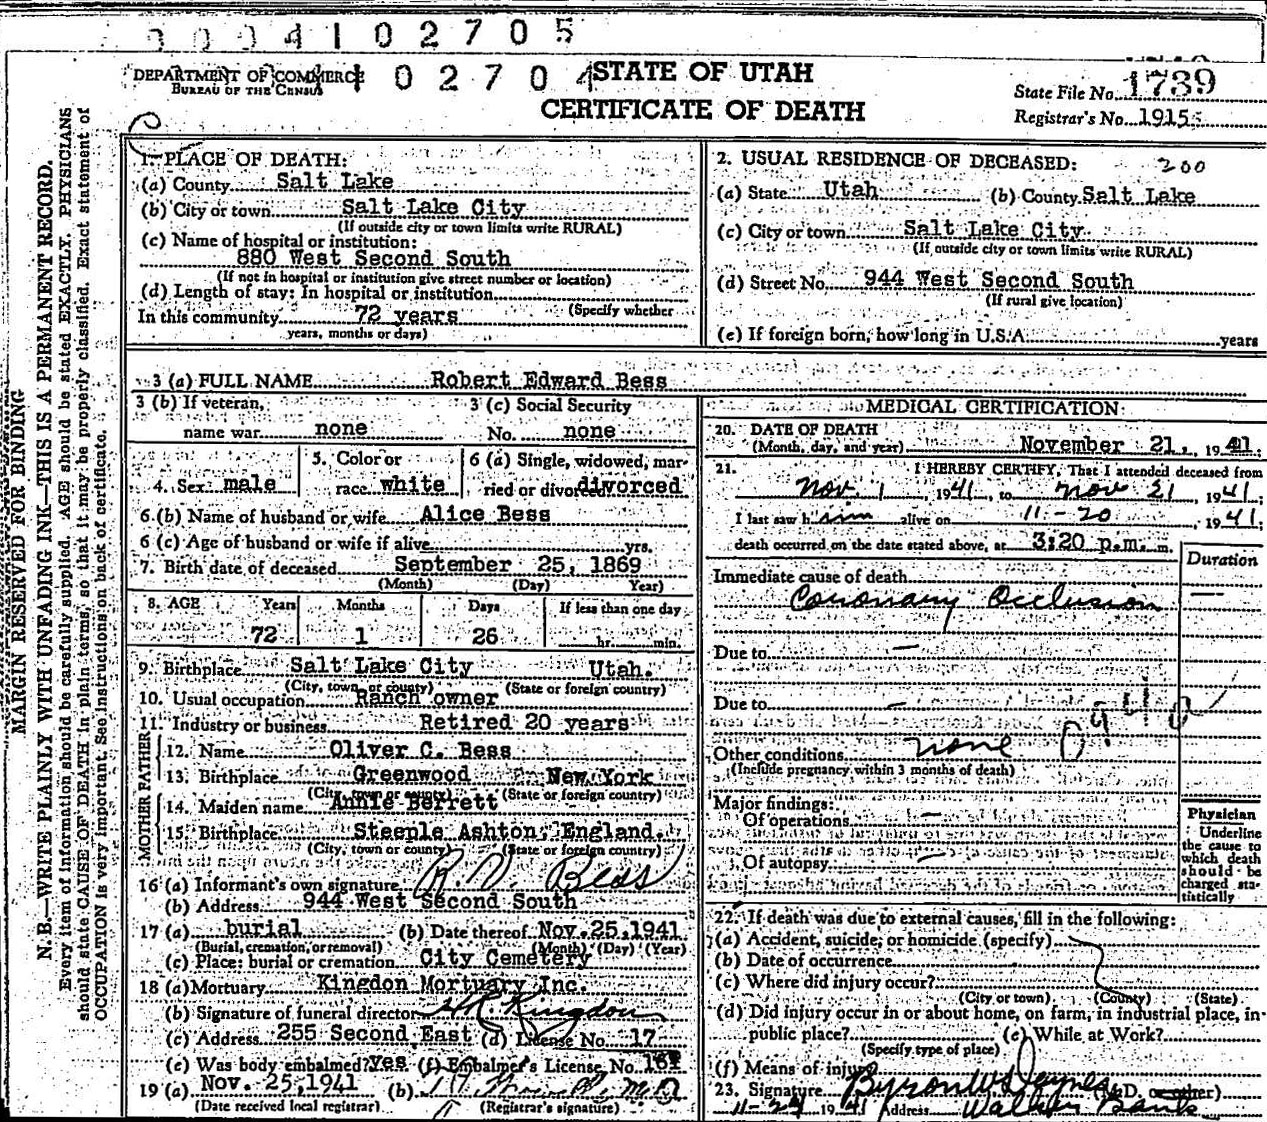 0004102705
DEPARTMENT OF COMMERCE
BUREAU OF THE CENSUS
102704
STATE OF UTAH
CERTIFICATE OF DEATH
State File No. 1739
Registrar's No. 1915
MARGIN RESERVED FOR BINDING
N. B.—WRITE PLAINLY WITH UNFADING INK—THIS IS A PERMANENT RECORD.
Every item of information should be carefully supplied. AGE should be stated EXACTLY. PHYSICIANS
should state CAUSE OF DEATH in plain terms, so that it may be properly classified. Exact statement of
OCCUPATION is very important. See instructions on back of certificate.
1. PLACE OF DEATH:
(a) County Salt Lake
(b) City or town Salt Lake City
(If outside city or town limits write RURAL)
(c) Name of hospital or institution:
880 West Second South
(If not in hospital or institution give street number or location)
(d) Length of stay: In hospital or institution
(Specify whether
In this community 72 years
years, months or days)
2. USUAL RESIDENCE OF DECEASED: 200
(a) State Utah (b) County Salt Lake
(c) City or town Salt Lake City
(If outside city or town limits write RURAL)
(d) Street No. 944 West Second South
(If rural give location)
(e) If foreign born, how long in U.S.A. years
3 (a) FULL NAME Robert Edward Bess
3 (b) If veteran, name war none
3 (c) Social Security No. none
4. Sex male
5. Color or race white
6 (a) Single, widowed, married or divorced divorced
6 (b) Name of husband or wife Alice Bess
6 (c) Age of husband or wife if alive yrs.
7. Birth date of deceased September 25, 1869
(Month) (Day) Year)
8. AGE Years Months Days If less than one day
72 1 26 hr. min.
9. Birthplace Salt Lake City Utah.
(City, town, or county) (State or foreign country)
10. Usual occupation Ranch owner
11. Industry or business Retired 20 years
FATHER
12. Name Oliver C. Bess
13. Birthplace Greenwood New York
(City, town or county) (State or foreign country)
MOTHER
14. Maiden name Annie Berrett
15. Birthplace Steeple Ashton, England.
(City, town or county) (State or foreign country)
16 (a) Informant's own signature R. V. Bess
(b) Address 944 West Second South
17 (a) burial (b) Date thereof Nov. 25, 1941
(Burial, cremation, or removal) (Month) (Day) (Year)
(c) Place: burial or cremation City Cemetery
18 (a) Mortuary Kingdon Mortuary Inc.
(b) Signature of funeral director Kingdon
(c) Address 255 Second East (d) License No. 17
(e) Was body embalmed? Yes (f) Embalmer's License No.
19 (a) Nov. 25, 1941 (b) M.D.
(Date received local registrar) (Registrar's signature)
MEDICAL CERTIFICATION
20. DATE OF DEATH
(Month, day, and year) November 21, 1941;
21. I HEREBY CERTIFY, That I attended deceased from
Nov. 1, 1941, to Nov 21, 1941;
I last saw him alive on 11-20, 1941;
death occurred on the date stated above, at 3:20 p.m. m.
Duration
Immediate cause of death
Coronary Occlusion —
Due to —
Due to —
Other conditions none
(Include pregnancy within 3 months of death)
Major findings:
Of operations —
Of autopsy —
Physician
Underline
the cause to
which death
should be
charged sta-
tistically
22. If death was due to external causes, fill in the following:
(a) Accident, suicide, or homicide (specify)
(b) Date of occurrence
(c) Where did injury occur?
(City or town) (County) (State)
(d) Did injury occur in or about home, on farm, in industrial place, in
public place? (e) While at Work?
(Specify type of place)
(f) Means of injury
23. Signature Byron W. Daynes (M.D. or other)
1941 Address Walker Bank